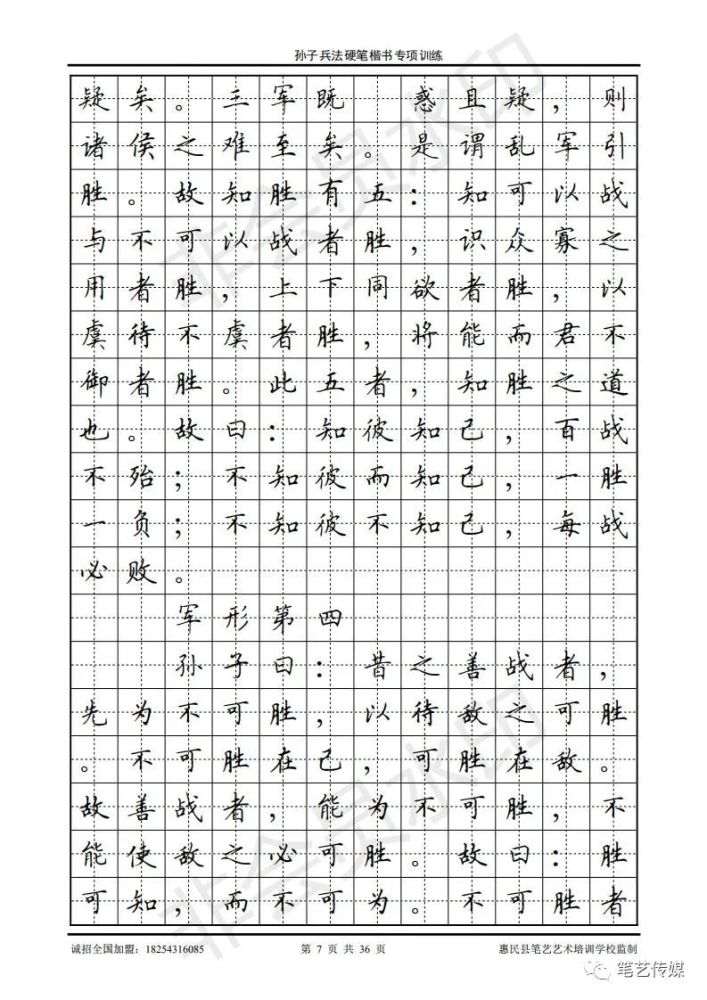 孙子兵法硬笔楷书专项训练
疑矣。三军既 惑且疑，则
诸侯之难至矣。是谓乱军引
胜。故知胜有五：知可以战
与不可以战者胜，识众寡之
用者胜，上下同欲者胜，以
虞待不虞者胜，将能而君不
御者胜。此五者，知胜之道
也。故曰：知彼知己，百战
不殆；不知彼而知己，一胜
一负；不知彼不知己，每战
必败。
军形第四
孙子曰：昔之善战者，
先为不可胜，以待敌之可胜
。不可胜在己，可胜在敌。
故善战者，能为不可胜，不
能使敌之必可胜。故曰：胜
可知，而不可为。不可胜者
诚招全国加盟：18254316085 第 7 页 共 36 页 惠民县笔艺艺术培训学校监制
非会员水印
非会员水印
笔艺传媒